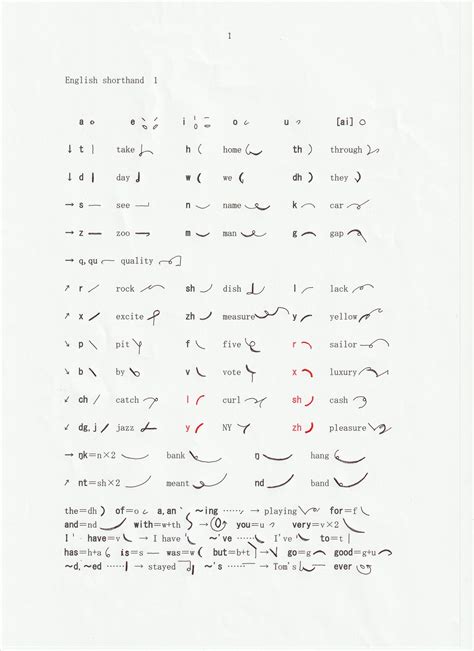 1
English shorthand 1
a e i o u [ai]
↓ t take h home th through
↓ d day w we dh they
→ s see n name k car
→ z zoo m man g gap
→ q, qu quality
↗ r rock sh dish l lack
↗ x excite zh measure y yellow
↘ p pit f five r sailor
↘ b by v vote x luxury
↙ ch catch l curl sh cash
↙ dg, j jazz y NY zh pleasure
→ ŋk=n×2 bank ŋ hang
↗ nt=sh×2 meant nd band
the=dh of=o a, an ~ing …… → playing for=f
and=nd with=w+th → you=u very=v×2
I have=v → I have ~'ve …… I've to=t
has=h+a is=s was=w but=b+t → go=g good=g+u
~d, ~ed …… → stayed ~'s …… → Tom's ever